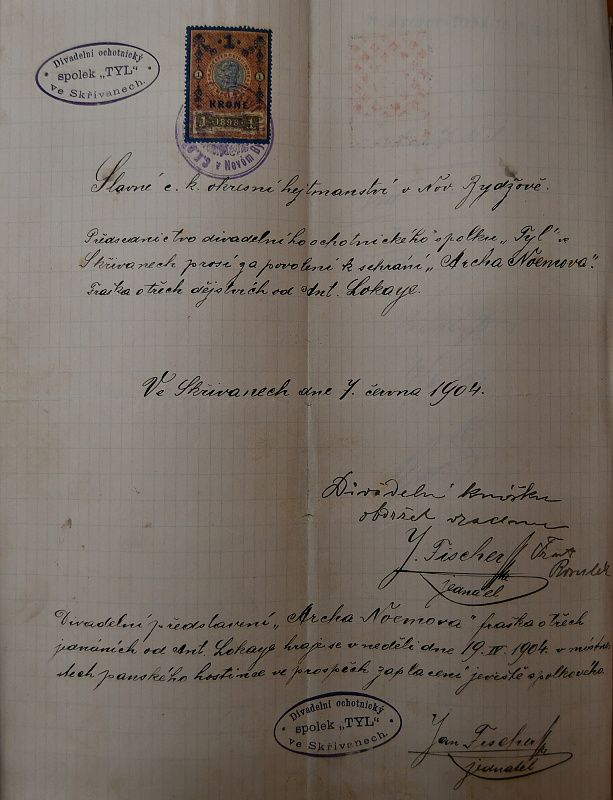 Divadelní ochotnický
spolek „TYL"
ve Skřivanech.
1
1 1
KRONE
1 1898 1
v Novém B
Slavné c. k. okresní hejtmanství v Nov. Bydžově.
Předsednictvo divadelního ochotnického spolku „Tyl" ve
Skřivanech prosí za povolení k sehrání „Archa Noemova".
Fraška o třech dějstvích od Ant. Lokaye.
Ve Skřivanech dne 7. června 1904.
Divadelní knížku
obdržel
J. Fischer
jednatel
Divadelní představení „Archa Noemova" fraška o třech
jednáních od Ant. Lokaye hraje se v neděli dne 19. 1904. v místno
stech panského hostince ve prospěch zaplacení jeviště spolkového.
Divadelní ochotnický
spolek „TYL"
ve Skřivanech.
Jan Fischer
jednatel